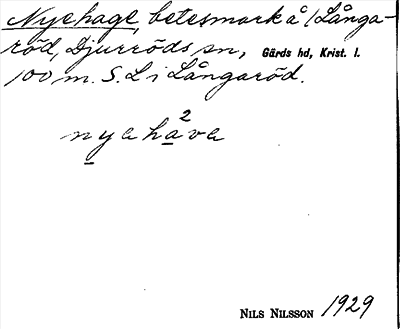 Nyehage, betesmark å 1 Långa-
röd, Djurröds sn, Gärds hd, Krist. l.
100 m. S. L i Långaröd.
2
nyahava
NILS NILSSON 1929